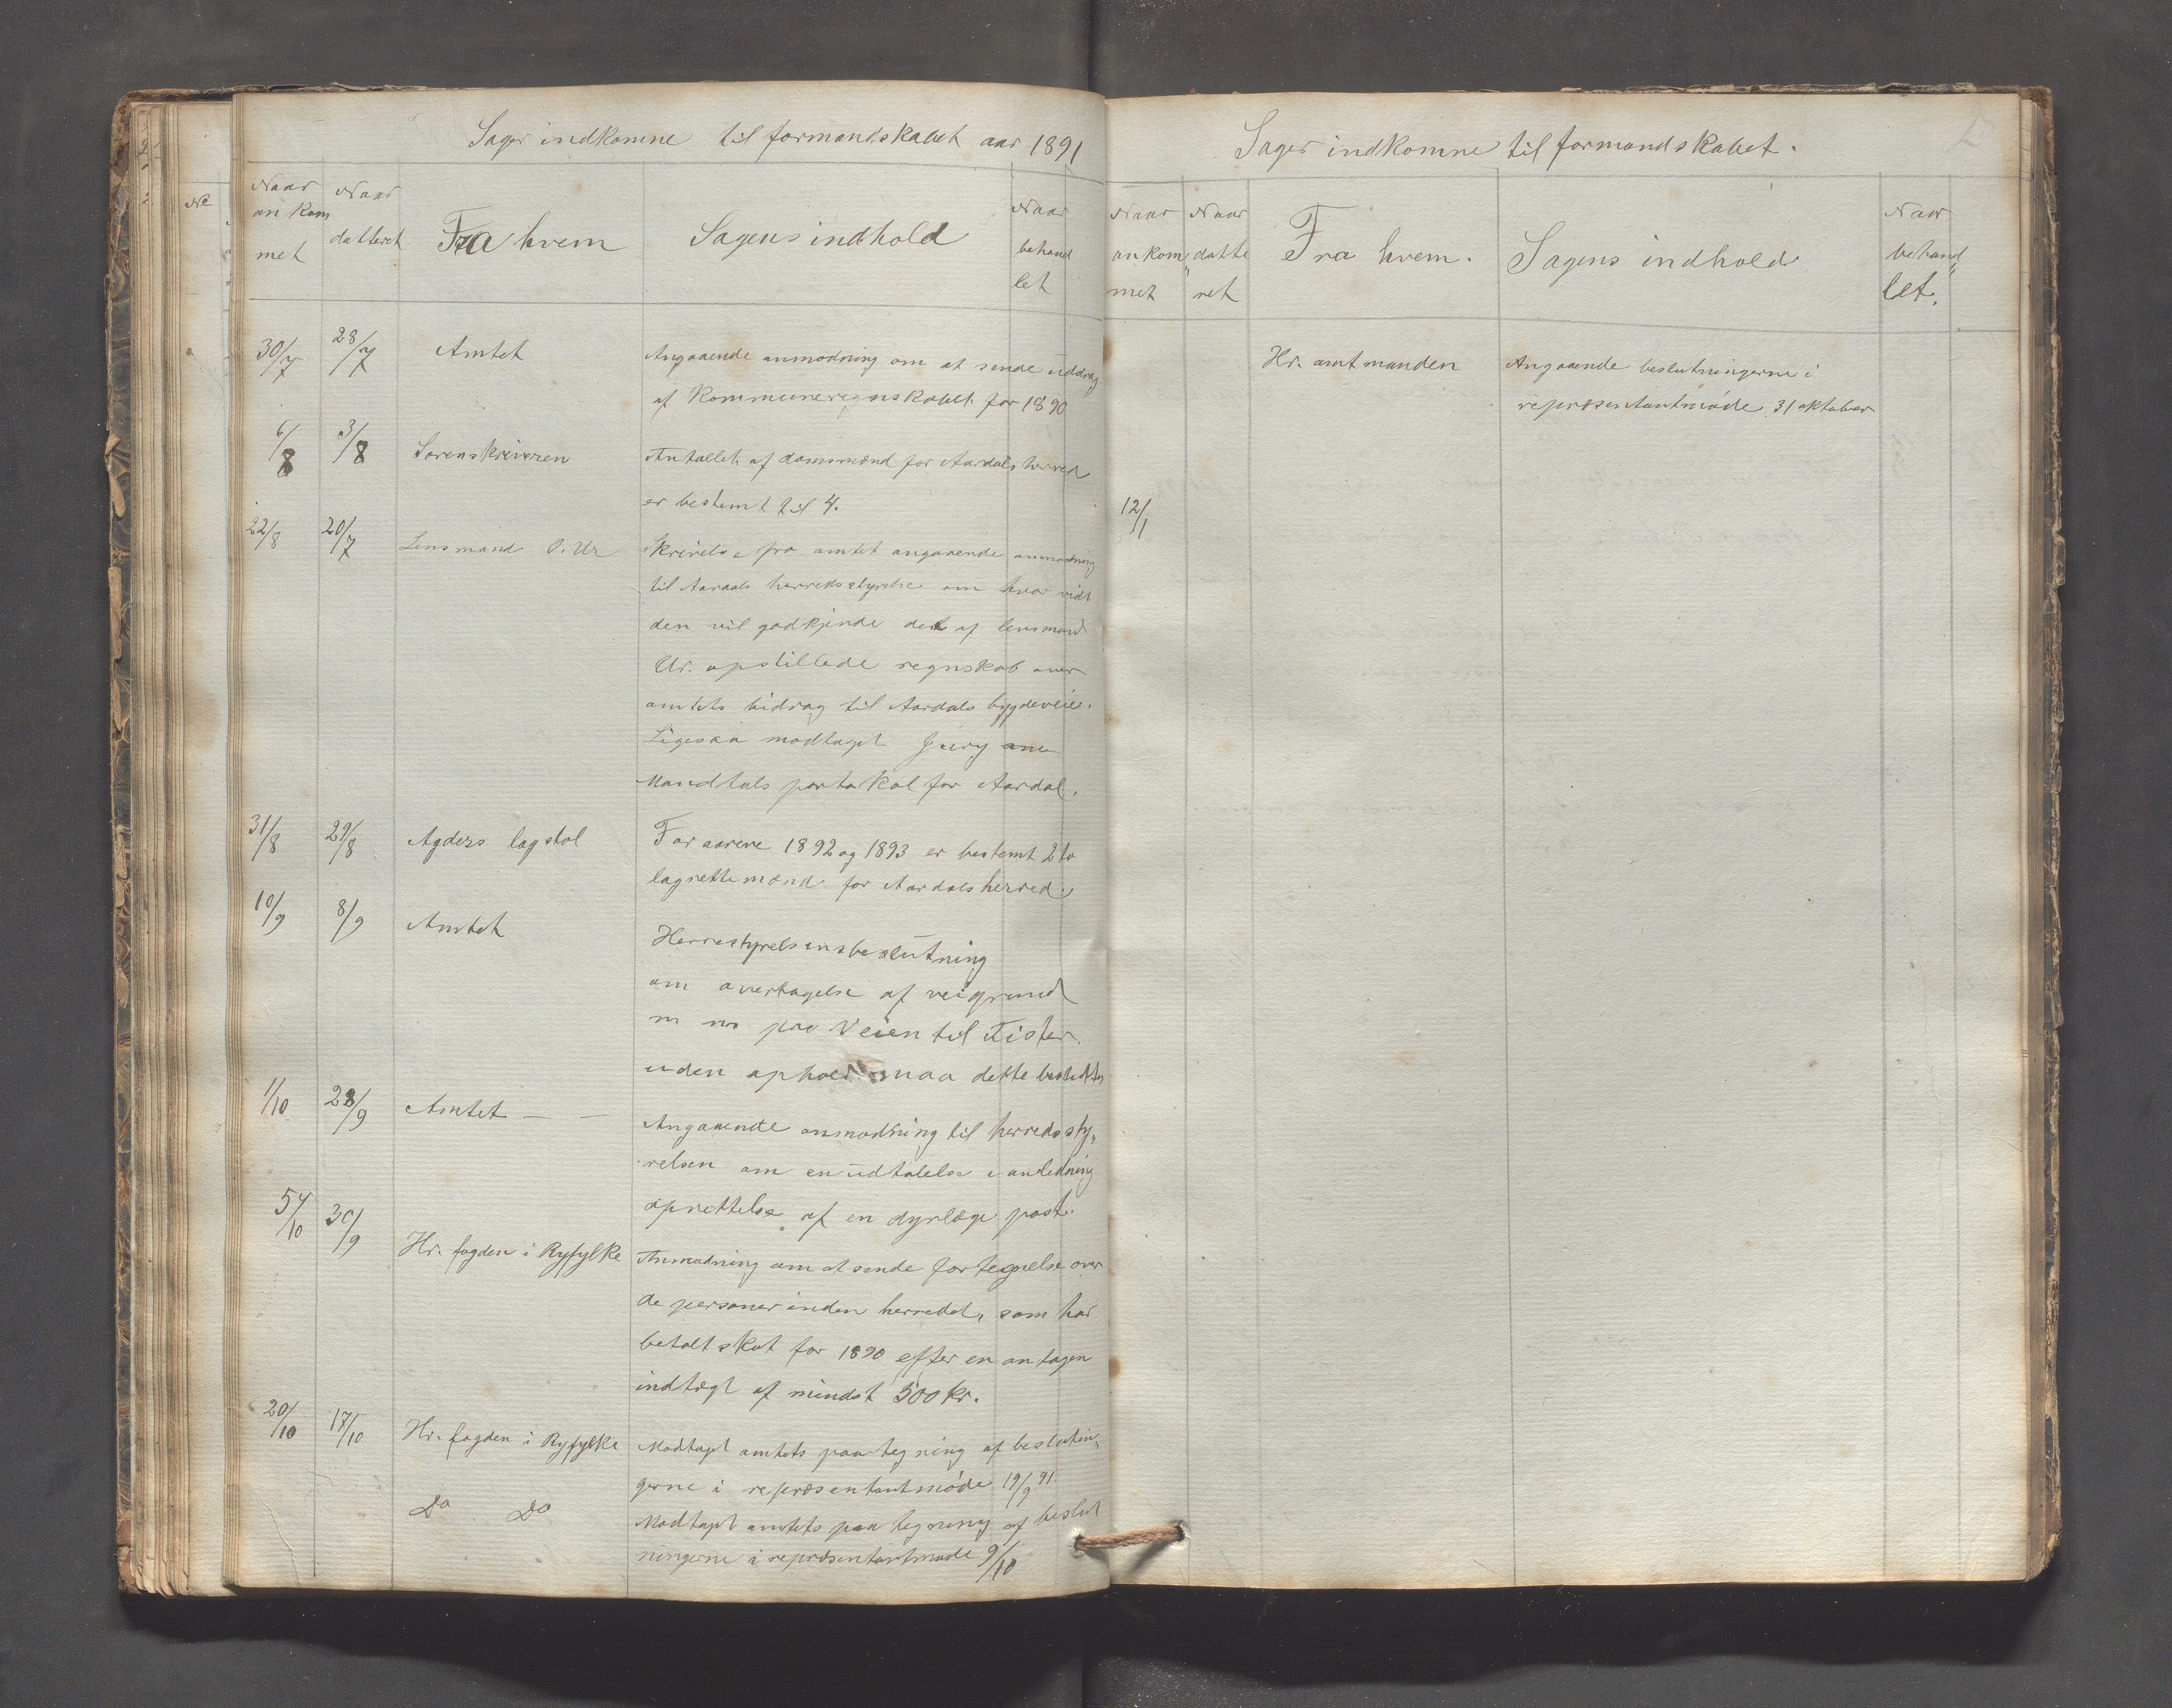 Sager indkomne til formandskabet aar 1891
Naar ankommet
Naar datteret
Fra hvem
Sagens indhold
Naar behandlet
30/7 28/7 Amtet Angaaende anmodning om at sende uddrag
af Kommuneregnskabet for 1890
6/8 3/8 Sorenskriveren Antallet af domsmænd for Aardals herred
er bestemt til 4.
22/8 20/7 Lensmand O. Ur Skrivelse fra amtet angaaende anmodning
til Aardals herredsstyrelse om hvor vidt
den vil godkjende det af lensmand
Ur. opstillede regnskab over
amtets bidrag til Aardals bygdeveie.
Ligesaa modtaget Jury
Mandtals portokol for Aardal.
31/8 29/8 Agders lagstol For aarene 1892 og 1893 er bestemt 2 to
lagrettemænd for Aardals herred.
10/9 8/9 Amtet Herrestyrelsens beslutning
om overtagelse af veigrund
m m paa Veien til Fister.
uden ophold maa dette besluttes
1/10 28/9 Amtet — — Angaaende anmodning til herredssty„
relsen om en udtalelse i anledning
oprettelse af en dyrlæge post.
5/10 30/9 Hr. fogden i Ryfylke Anmodning om at sende fortegnelse over
de personer inden herredet, som har
betalt skat for 1890 efter en antagen
indtægt af mindst 500 kr.
20/10 17/10 Hr. fogden i Ryfylke Modtagt amtets paategning af beslutnin„
gerne i repræsentantmøde 19/9 91.
Do Do Modtagt amtets paategning af beslut
ningerne i repræsentantmøde 9/10
Sager indkomne til formandskabet.
Naar ankom„met
Naar datteret
Fra hvem.
Sagens indhold
Naar behand„let.
Hr. amtmanden Angaaende beslutningerne i
repræsentantmøde 31 oktober
12/1
No